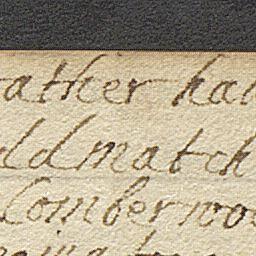 ather had
ld match
Comberwoo